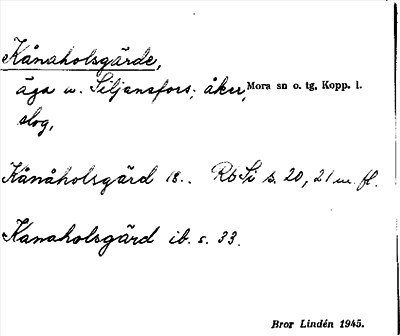 Kånaholsgärde,
äga w. Siljansfors; åker, Mora sn o. tg, Kopp. l.
slog,
Kånåholsgärd 18.. RbSi s. 20, 21 m. fl.
Kanaholsgärd ib. s. 33.
Bror Lindén 1945.